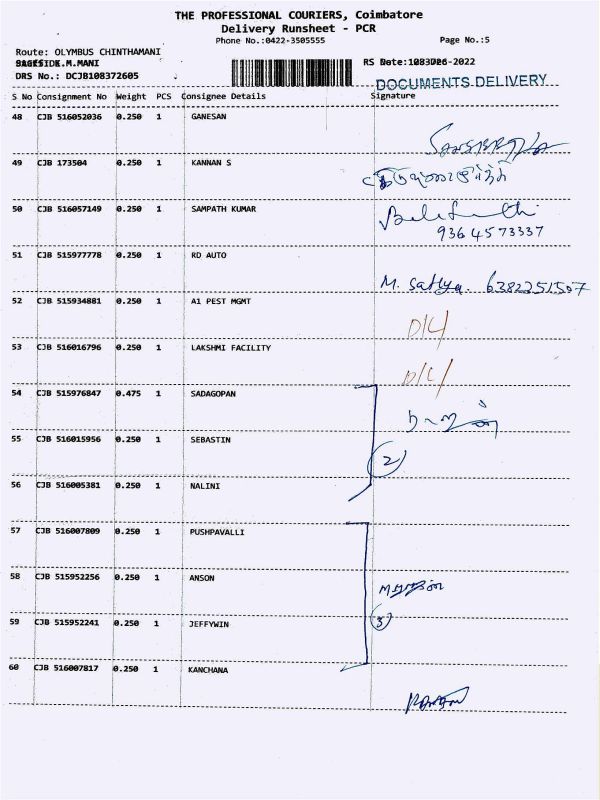 THE PROFESSIONAL COURIERS, Coimbatore
Delivery Runsheet - PCR
Phone No.:0422-3505555 Page No.:5
Route: OLYMBUS CHINTHAMANI
DRS No.: DCJB108372605
DOCUMENTS DELIVERY
S No Consignment No Weight PCS Consignee Details Signature
48 CJB 516052036 0.250 1 GANESAN
49 CJB 173504 0.250 1 KANNAN S
50 CJB 516057149 0.250 1 SAMPATH KUMAR
9364573337
51 CJB 515977778 0.250 1 RD AUTO
M. Sathya. 6282251507
52 CJB 515934881 0.250 1 A1 PEST MGMT
D/L/
53 CJB 516016796 0.250 1 LAKSHMI FACILITY
D/L/
54 CJB 515976847 0.475 1 SADAGOPAN
55 CJB 516015956 0.250 1 SEBASTIN
2
56 CJB 516005381 0.250 1 NALINI
57 CJB 516007809 0.250 1 PUSHPAVALLI
58 CJB 515952256 0.250 1 ANSON
59 CJB 515952241 0.250 1 JEFFYWIN
3
60 CJB 516007817 0.250 1 KANCHANA